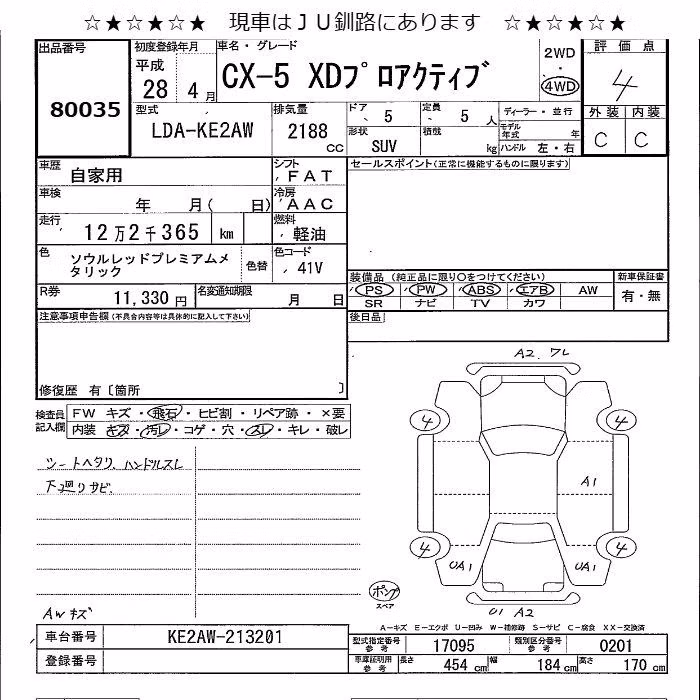 ☆★☆★☆★ 現車はＪＵ釧路にあります ☆★☆★☆★
出品番号
80035
初度登録年月
平成
28 4 月
車名・グレード
CX-5 XDプロアクティブ
2WD
・
4WD
評価点
4
外装 内装
C C
型式
LDA-KE2AW
排気量
2188
CC
ドア
5
定員
5 人
形状
SUV
積載
kg
ディーラー・並行
モデル年式 年
ハンドル 左・右
車歴
自家用
シフト
FAT
車検
年 月( 日)
冷房
AAC
走行
12万2千365 km
燃料
軽油
色
ソウルレッドプレミアムメタリック
色替
色コード
41V
R券
11,330 円
名変通知期限
月 日
セールスポイント(正常に機能するものに限ります)
装備品 (純正品に限り○をつけてください)
PS PW ABS エアB AW
SR ナビ TV カワ
新車保証書
有・無
後日品
注意事項申告欄(不具合内容等は具体的に記入して下さい)
修復歴 有〔箇所 〕
検査員記入欄
FW キズ・飛石・ヒビ割・リペア跡・×要
内装 キズ・汚れ・コゲ・穴・スレ・キレ・破レ
シートヘタリ、ハンドルスレ
下廻りサビ
AWキズ
A2 フレ
4 4
A1
4 4
UA1 UA1
U1 A2
ポンプ
スペア
A－キズ E－エクボ U－凹み W－補修跡 S－サビ C－腐食 XX－交換済
車台番号
KE2AW-213201
登録番号
型式指定番号
参考
17095
類別区分番号
参考
0201
車庫証明用
参考
長さ 454 cm
幅 184 cm
高さ 170 cm